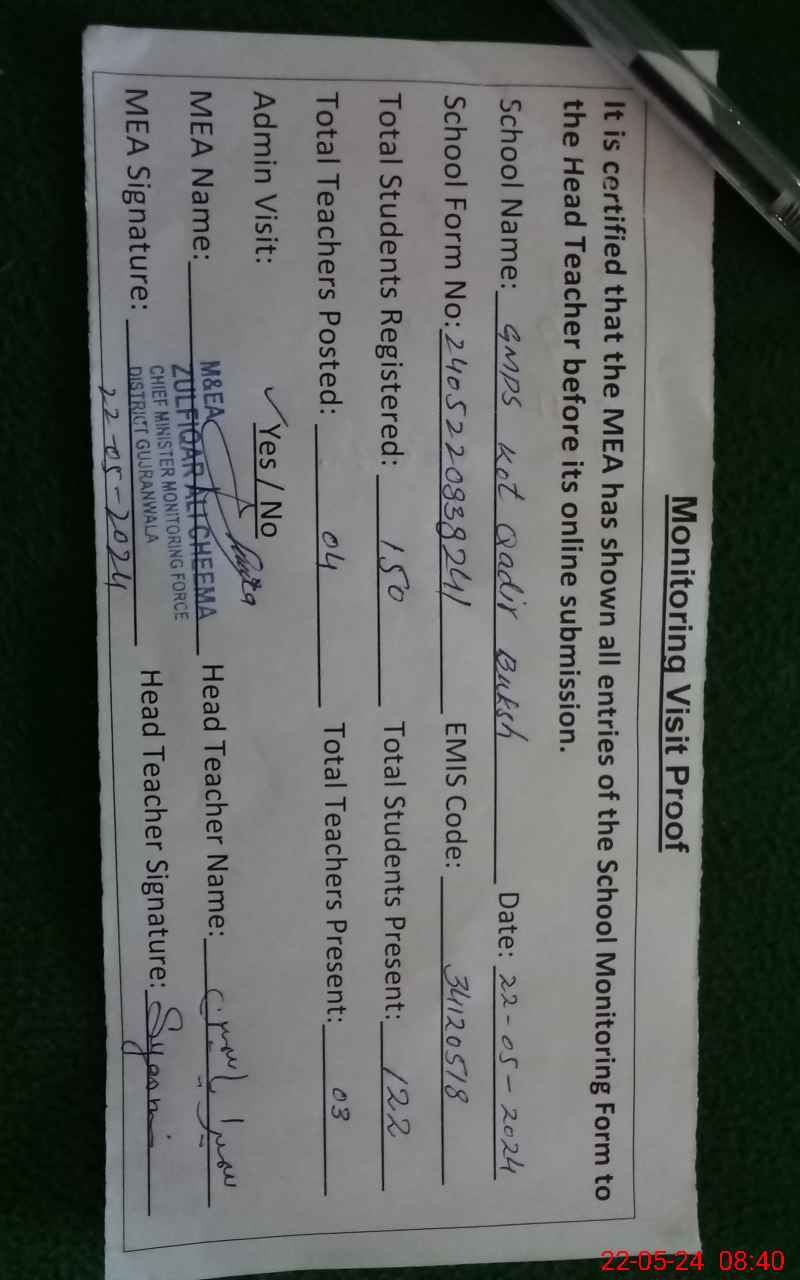 Monitoring Visit Proof
It is certified that the MEA has shown all entries of the School Monitoring Form to
the Head Teacher before its online submission.
School Name: GMPS Kot Qadir Buksh Date: 22-05-2024
School Form No: 2405220838241 EMIS Code: 34120518
Total Students Registered: 150 Total Students Present: 122
Total Teachers Posted: 04 Total Teachers Present: 03
Admin Visit: ✓ Yes / No
MEA Name: Head Teacher Name:
M&EA
ZULFIQAR ALI CHEEMA
CHIEF MINISTER MONITORING FORCE
DISTRICT GUJRANWALA
MEA Signature: Head Teacher Signature:
22-05-2024
22-05-24 08:40